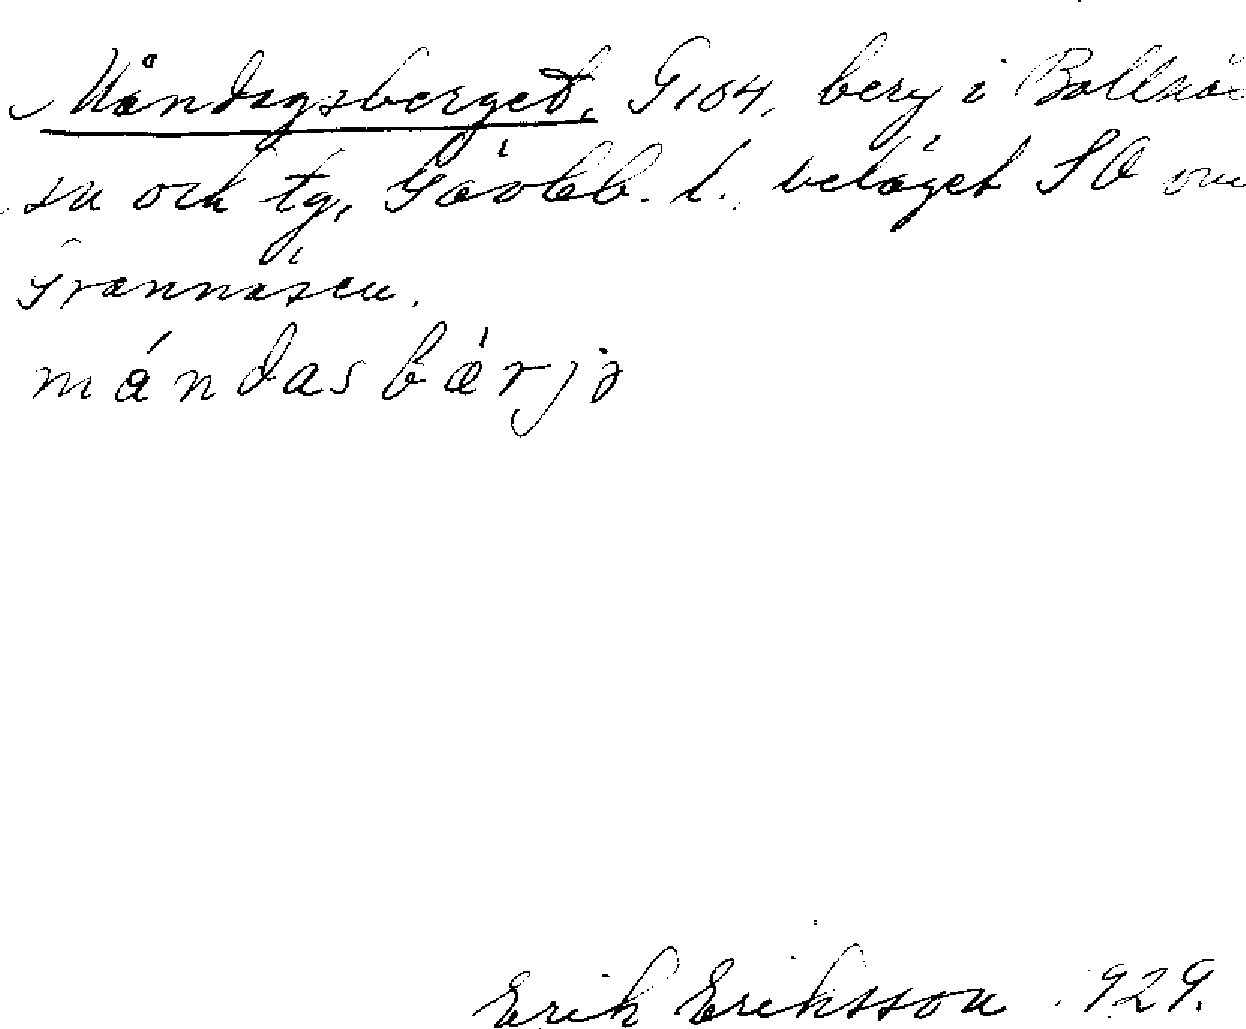 Måndagsberget, G104, berg i Bollnäs
sn och tg, Gävleb. l. beläget SO om
Grannäsen.
mándasbärjə
Erik Eriksson 1929.